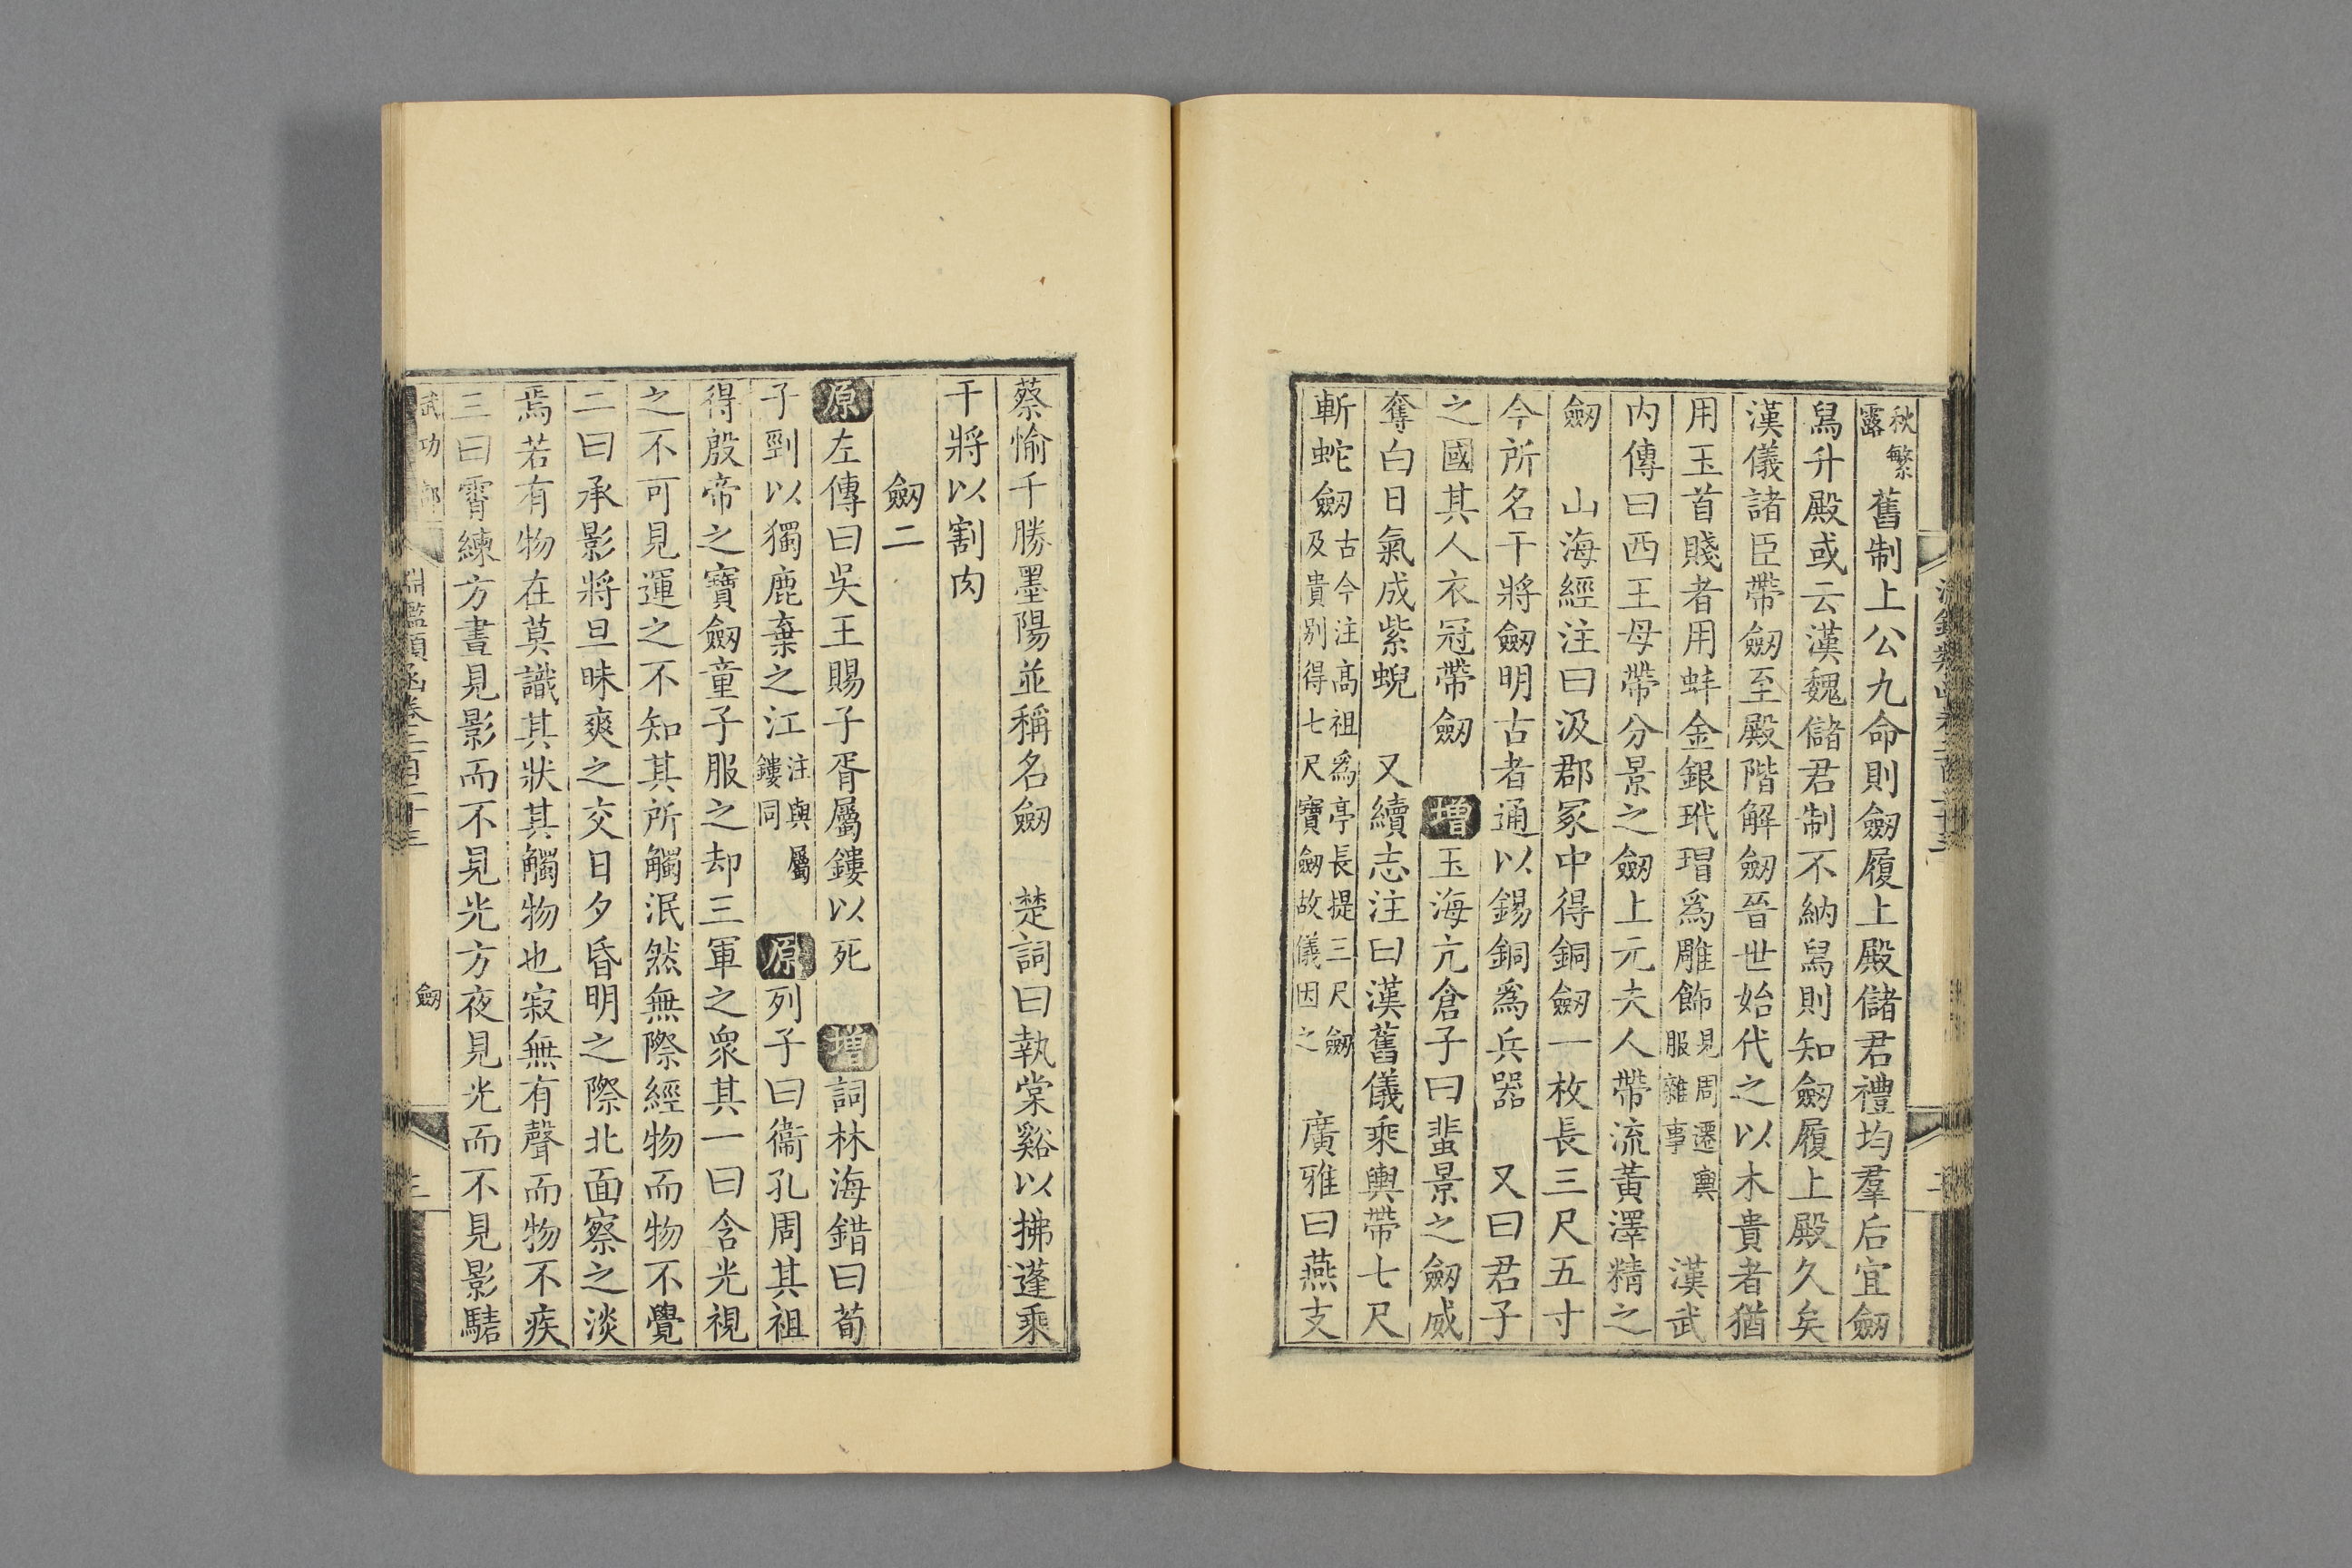 秋繁露 舊制上公九命則劒履上殿儲君禮均羣后宜劒
舄升殿或云漢魏儲君制不納舄則知劒履上殿久矣
漢儀諸臣帶劒至殿階解劒晉世始代之以木貴者猶
用玉首賤者用蚌金銀玳瑁爲雕飾見周遷輿服雜事 漢武
內傳曰西王母帶分景之劒上元夫人帶流黃澤精之
劒 山海經注曰汲郡冢中得銅劒一枚長三尺五寸
今所名干將劒明古者通以錫銅爲兵器 又曰君子
之國其人衣冠帶劒 增玉海亢倉子曰蜚景之劒威
奪白日氣成紫蜺 又續志注曰漢舊儀乘輿帶七尺
斬蛇劒古今注高祖爲亭長提三尺劒及貴別得七尺寶劒故儀因之 廣雅曰燕支
蔡愉千勝墨陽並稱名劒 楚詞曰執棠谿以拂蓬乘
干將以割肉
劒二
原左傳曰吳王賜子胥屬鏤以死 增詞林海錯曰荀
子剄以獨鹿棄之江注與屬鏤同 原列子曰衞孔周其祖
得殷帝之寶劒童子服之却三軍之衆其一曰含光視
之不可見運之不知其所觸泯然無際經物而物不覺
二曰承影將旦昧爽之交日夕昏明之際北面察之淡
焉若有物在莫識其狀其觸物也寂無有聲而物不疾
三曰霄練方晝見影而不見光方夜見光而不見影騞
武功部 淵鑑類函卷二百二十三 劒 三